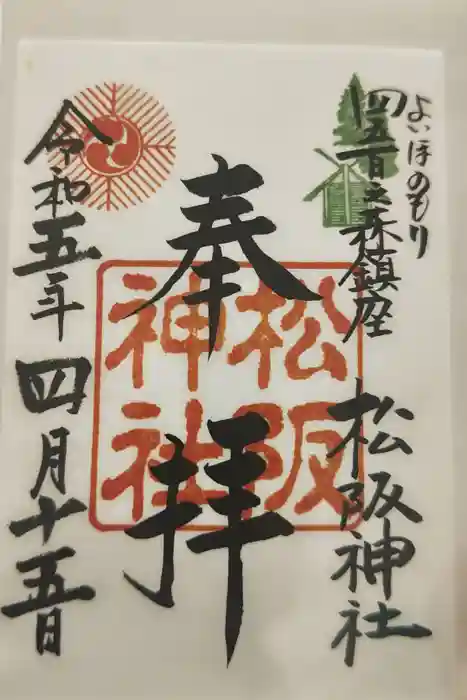 よいほのもり
四五百之森鎮座
松阪神社
奉拝
松阪
神社
令和五年四月十五日